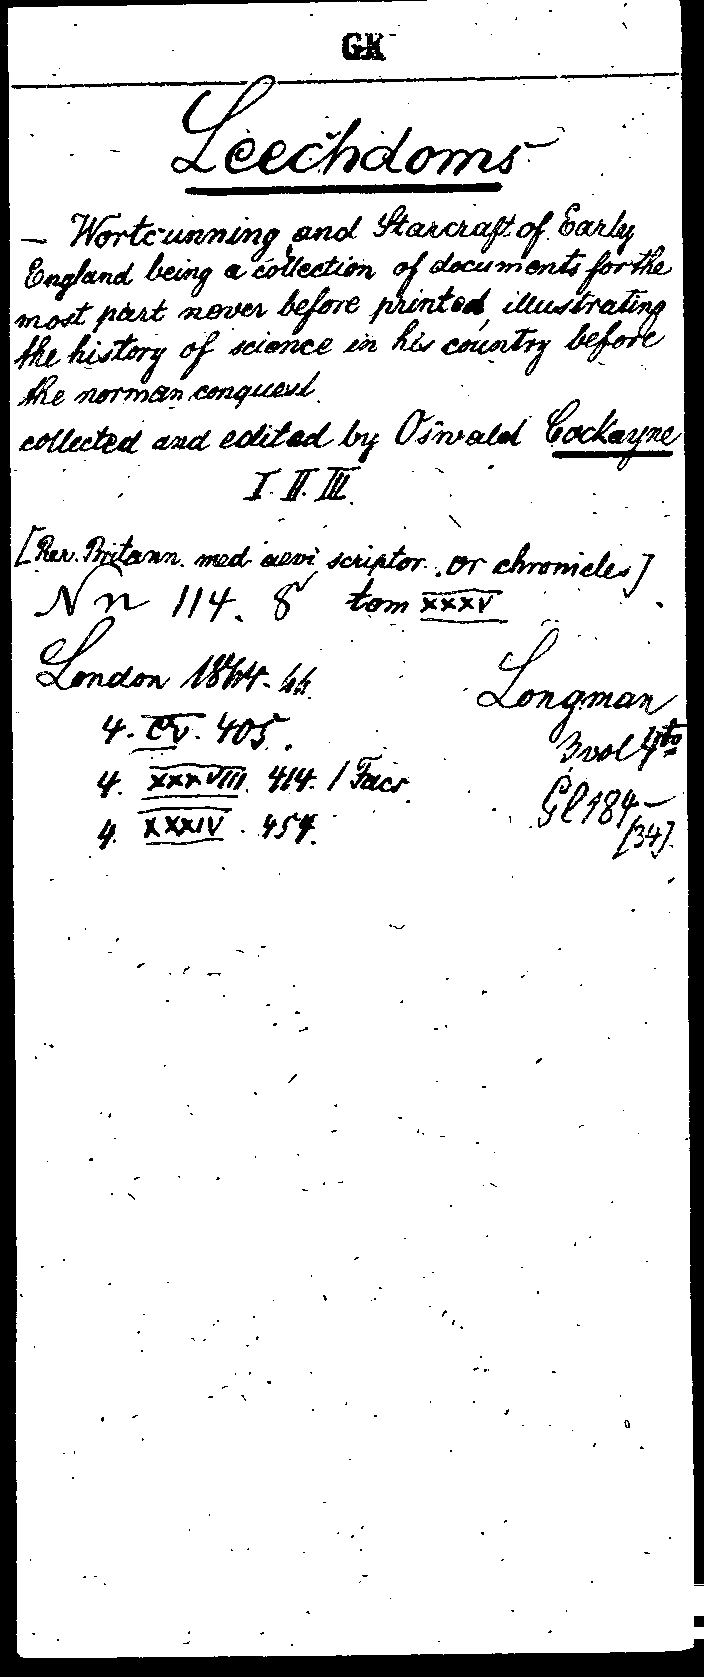 GK
Leechdoms
— Wortcunning and Starcraft of Early
England being a collection of documents for the
most part never before printed, illustrating
the history of science in his country before
the norman conquest.
collected and edited by Oswald Cockayne
I. II. III.
[Rer. Britann. med aevi scriptor. or chronicles]
Nn 114. 8 tom XXXV
London 1864-66. Longman
4. CV. 405. 3 vol 4to
4. XXXVIII. 414. / Facs Gl 184—
4. XXXIV. 454. [34].